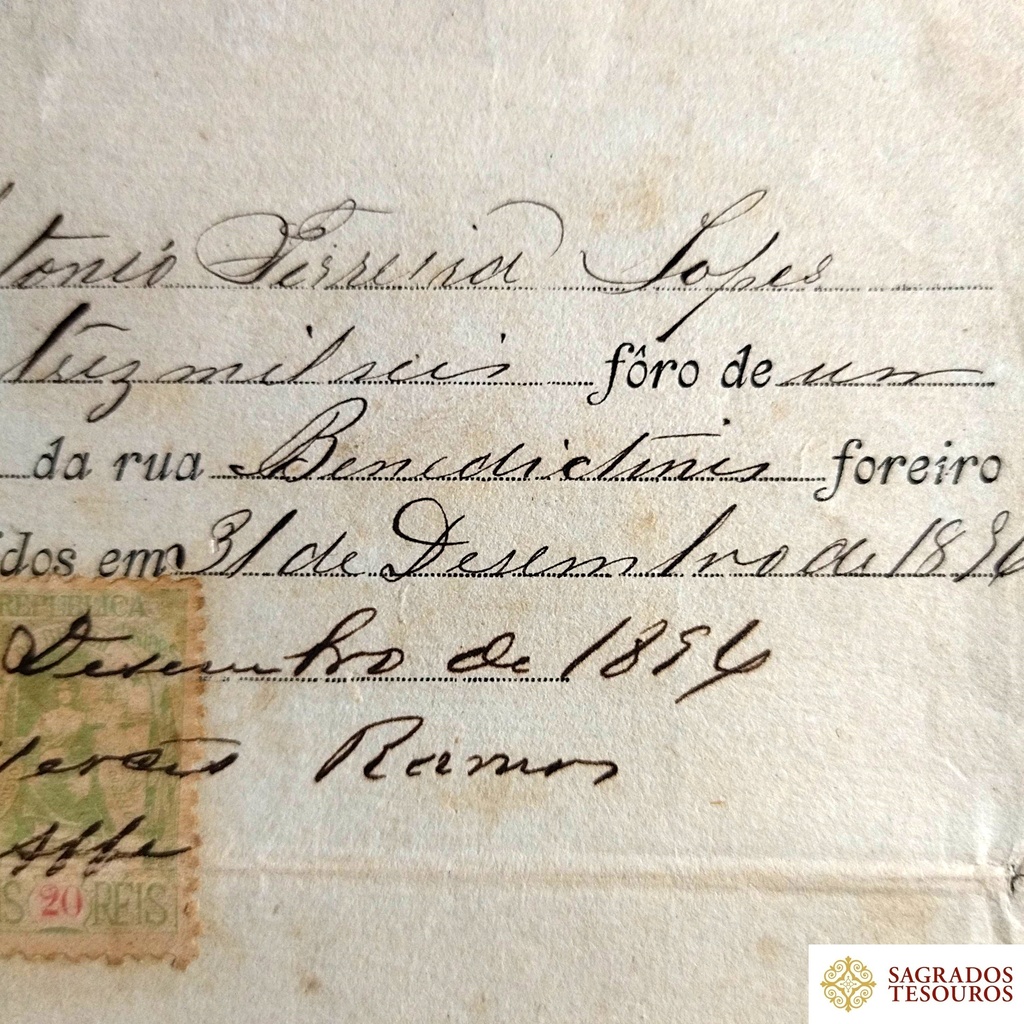 tonio Ferreira Lopes
trez mil reis fôro de um
da rua Benedictinis foreiro
dos em 31 de Desembro de 1896
REPUBLICA
Desembro de 1896
Mercês Ramos
Abbe
S 20 RÉIS
SAGRADOS
TESOUROS